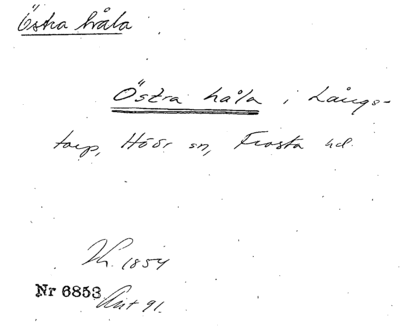 Östra håla
Östra håla i Långs-
torp, Höör sn, Frosta hd.
1854
Nr 6853
91.